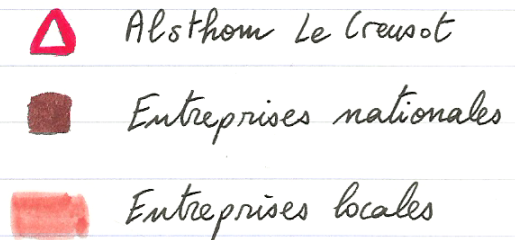 Alsthom Le Creusot
Entreprises nationales
Entreprises locales